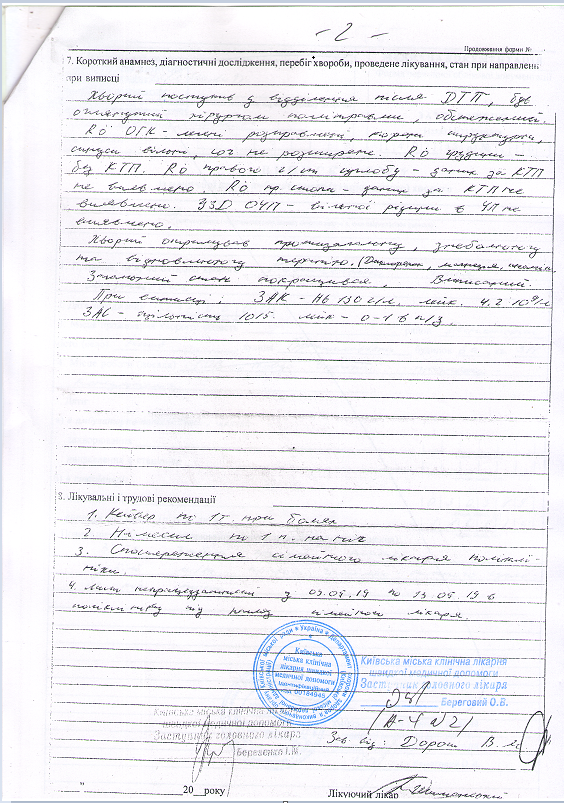 - 2 -
Продовження форми №
7. Короткий анамнез, діагностичні дослідження, перебіг хвороби, проведене лікування, стан при направленн
при виписці
Хворий поступив у відділення після ДТП, був
оглянутий хірургом політравми, обстежений.
Rö ОГК - легені розправлені, корені структурні,
синуси вільні, не розширене. Rö грудини -
без КТП. Rö правого суглобу - даних за КТП
не виявлено. Rö пр. стопи - даних за КТП не
виявлено. УЗД ОЧП - вільної рідини в ЧП не
виявлено.
Хворий отримував протизапальну, знеболюючу
та відновлюючу терапію.
Загальний стан покращився. Виписаний.
При виписці: ЗАК - Нь 130 г/л, лейк. 4,2·10⁹/л
ЗАС - щільність 1015. лейк - 0-1 в п/з.
8. Лікувальні і трудові рекомендації
1. Кейвер по 1т. при болях
2. Німесил по 1 п. на ніч
3. Спостереження сімейного лікаря поліклі-
ніки.
4. Лист непрацездатності з по 19 в
поліклініку під нагляд сімейного лікаря.
Київська
міська клінічна
лікарня швидкої
медичної допомоги
Київська міська клінічна лікарня
швидкої медичної допомоги
Заступник головного лікаря
Береговий О.В.
Київська міська клінічна лікарня
швидкої медичної допомоги
Заступник головного лікаря
Зав. від: Дорош В. М.
20 року
Лікуючий лікар